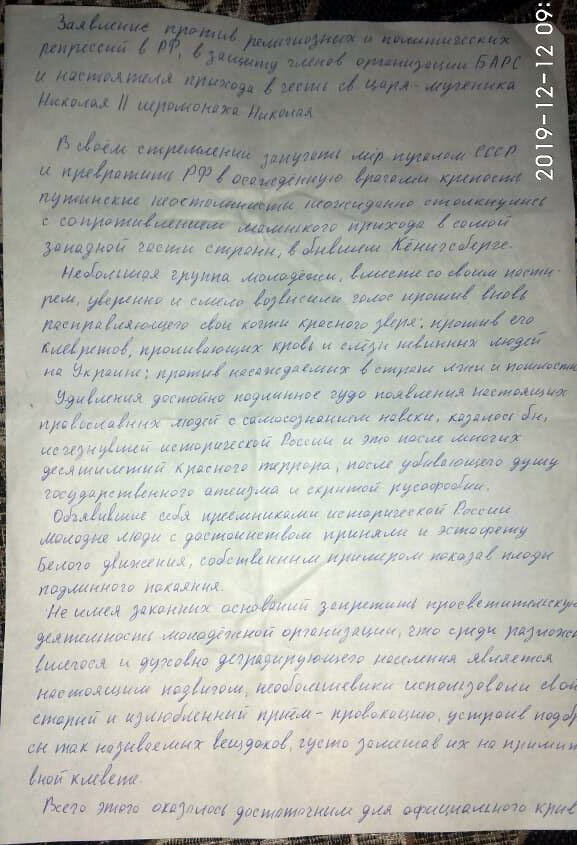 Заявление против религиозных и политических
репрессий в РФ, в защиту членов организации БАРС
и настоятеля прихода в честь св царя-мученика
Николая II иеромонаха Николая
В своём стремлении запугать мір пугалом СССР
и превратить РФ в осаждённую врагами крепость
путинские неосталинисты неожиданно столкнулись
с сопротивлением маленького прихода в самой
западной части страны, в бывшем Кёнигсберге.
Небольшая группа молодёжи, вместе со своим пасты-
рем, уверенно и смело возвысили голос против вновь
расправляющего свои когти красного зверя; против его
клевретов, проливающих кровь и слёзы невинных людей
на Украине; против насаждаемых в стране лжи и пошлости
Удивления достойно подлинное чудо появления настоящих
православных людей с самосознанием навеки, казалось бы,
исчезнувшей исторической России и это после многих
десятилетий красного террора, после убивающего душу
государственного атеизма и скрытой русофобии.
Объявившие себя преемниками исторической России
молодые люди с достоинством приняли и эстафету
Белого движения, собственным примером показав плоды
подлинного покаяния.
Не имея законных оснований запретить просветительскую
деятельность молодёжной организации, что среди разложи
вшегося и духовно деградирующего населения является
настоящим подвигом, необольшевики использовали свой
старый и излюбленный приём - провокацию, устроив подбр
сы так называемых вещдоков, густо замешав их на примит
вной клевете.
Всего этого оказалось достаточным для официального крив
2019-12-12 09: